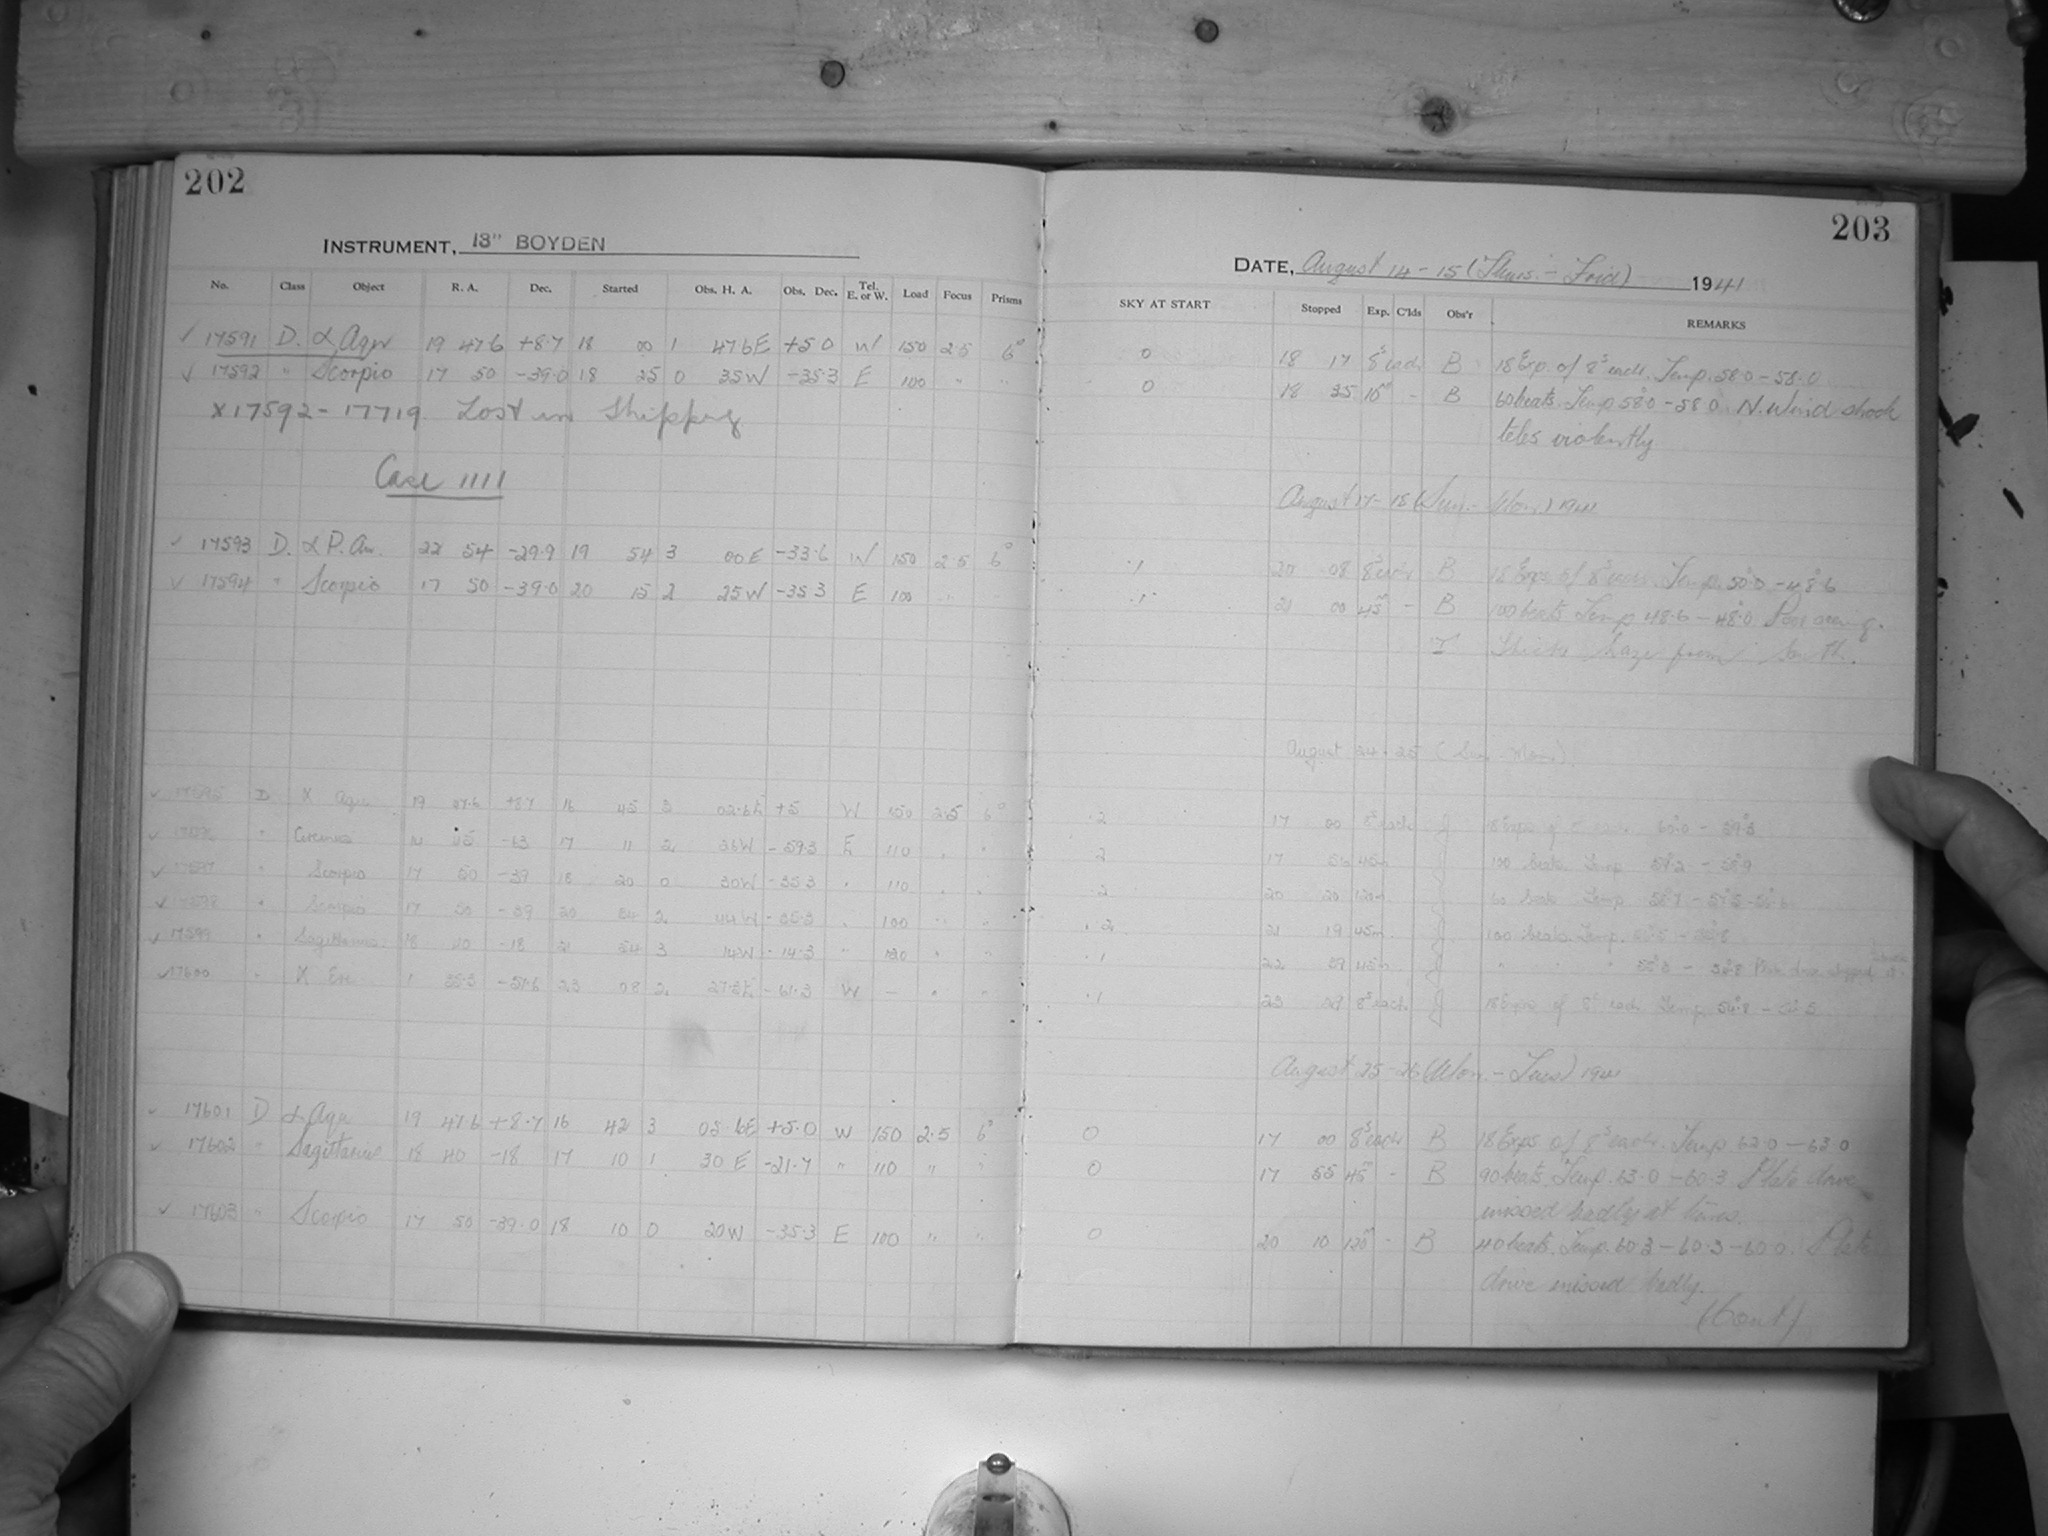 202
INSTRUMENT, 13" BOYDEN
No. Class Object R. A. Dec. Started Obs. H. A. Obs. Dec. Tel. E. or W. Load Focus Prisms
✓ 17591 D. α Aqu 19 47.6 +8.7 18 00 1 47.6E +5.0 W 150 2.5 6°
✓ 17592 " Scorpio 17 50 -39.0 18 25 0 35W -35.3 E 100 " "
X17592-17719 Lost in Shipping
Case 1111
✓ 17593 D. α P. Au. 22 54 -29.9 19 54 3 00E -33.6 W 150 2.5 6°
✓ 17594 " Scorpio 17 50 -39.0 20 15 2 25W -35.3 E 100 "
✓ 17595 D 19 47.6 +8.7 16 45 3 02.6E +5 W 150 2.5 6°
✓ " -63 17 11 2 26W -59.3 E 110 " "
✓ 17597 " Scorpio 17 50 -39 18 20 0 30W -35.3 " 110 " "
✓ 17598 " Scorpio 17 50 -39 20 34 2 44W -35.3 " 100 " "
✓ 17599 " Sagittarius 18 40 -18 21 54 3 14W -14.3 " 120 " "
✓ 17600 " 1 35.3 -51.6 23 08 2 27.3E -61.3 W - " "
✓ 17601 D α Aqu 19 47.6 +8.7 16 42 3 05.6E +5.0 W 150 2.5 6°
✓ 17602 " Sagittarius 18 40 -18 17 10 1 30E -21.7 " 110 " "
✓ 17603 " Scorpio 17 50 -39.0 18 10 0 20W -35.3 E 100 " "
203
DATE, August 14-15 (Thurs. - Frid) 1941
SKY AT START Stopped Exp. C'lds Obs'r REMARKS
0 18 17 8ˢ each B 18 Exp. of 8ˢ each. Temp. 58.0-58.0
0 18 35 10ᵐ - B 60 beats. Temp 58.0-58.0. N. Wind shook
teles violently
August 17-18 (Sun. - Mon.) 1941
.1 20 08 8ˢ each B 18 Exps of 8ˢ each. Temp. 50.0-48.6
.1 21 00 45ᵐ - B 100 beats Temp 48.6-48.0 Poor seeing.
Thick haze from South.
August 24-25 (Sun. - Mon.)
.2 17 00 8ˢ each J 18 Exps of 8ˢ each 60.0 - 59.3
.2 17 45m J 100 beats Temp 59.2 - 58.9
.2 20 20 120m J 60 beats Temp
.2 21 19 45m J 100 beats Temp.
.1 22 39 45m J " " "
.1 23 29 8ˢ each J 18 Exps of 8ˢ each Temp
August 25-26 (Mon. - Tues) 1941
0 17 00 8ˢ each B 18 Exps of 8ˢ each. Temp 62.0-63.0
0 17 55 45ᵐ - B 90 beats. Temp. 63.0-60.3 Plate drive
missed badly at times.
0 20 10 120ᵐ - B 40 beats. Temp. 60.3-60.3-60.0. Plate
drive missed badly.
(Cont)